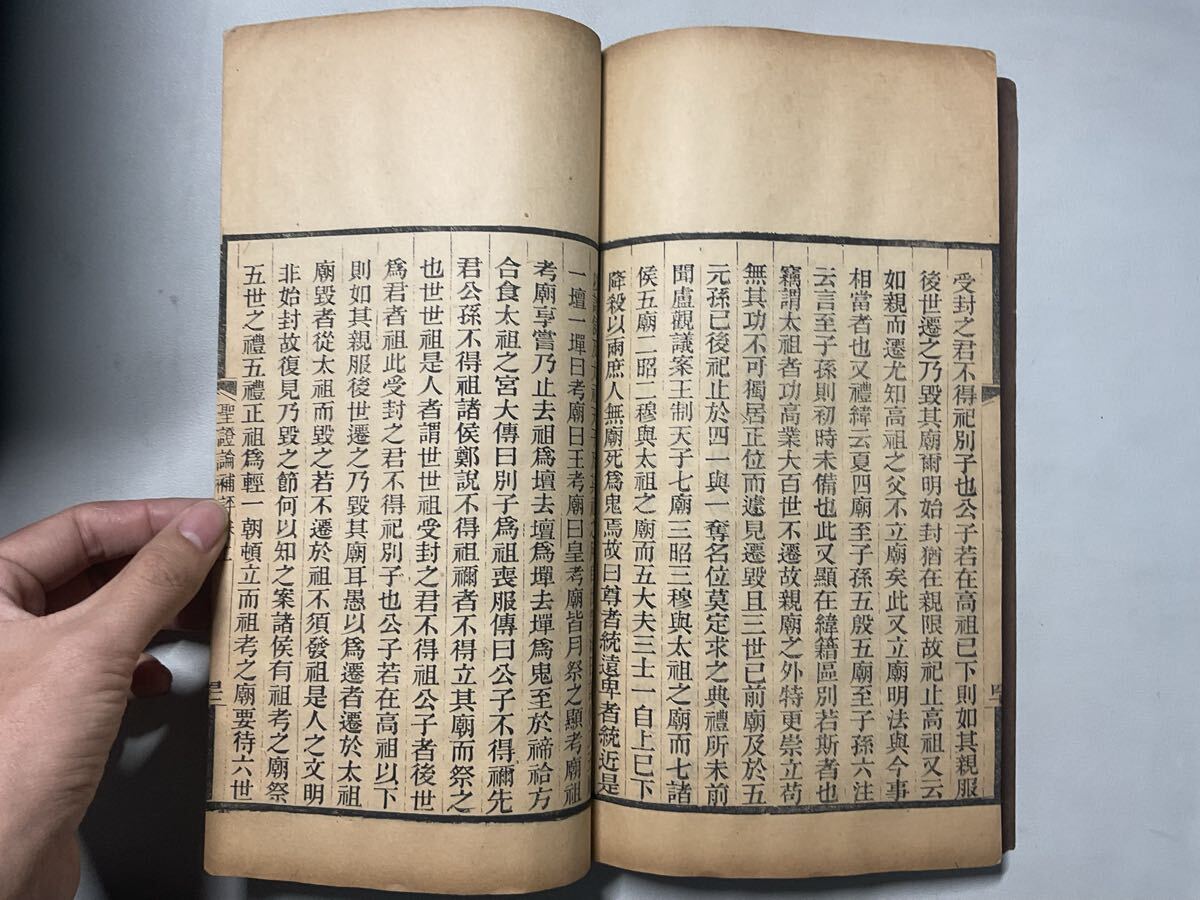 受封之君不得祀別子也公子若在高祖已下則如其親服
後世遷之乃毀其廟爾明始封猶在親限故祀止高祖又云
如親而遷尤知高祖之父不立廟矣此又立廟明法與今事
相當者也又禮緯云夏四廟至子孫五殷五廟至子孫六注
云言至子孫則初時未備也此又顯在緯籍區別若斯者也
竊謂太祖者功高業大百世不遷故親廟之外特更崇立苟
無其功不可獨居正位而遽見遷毀且三世已前廟及於五
元孫已後祀止於四一與一奪名位莫定求之典禮所未前
聞盧觀議案王制天子七廟三昭三穆與太祖之廟而七諸
侯五廟二昭二穆與太祖之廟而五大夫三士一自上已下
降殺以兩庶人無廟死爲鬼焉故曰尊者統遠卑者統近是
一壇一墠曰考廟曰王考廟曰皇考廟皆月祭之顯考廟祖
考廟享嘗乃止去祖爲壇去壇爲墠去墠爲鬼至於禘祫方
合食太祖之宮大傳曰別子爲祖喪服傳曰公子不得禰先
君公孫不得祖諸侯鄭說不得祖禰者不得立其廟而祭之
也世世祖是人者謂世世祖受封之君不得祖公子者後世
爲君者祖此受封之君不得祀別子也公子若在高祖以下
則如其親服後世遷之乃毀其廟耳愚以爲遷者遷於太祖
廟毀者從太祖而毀之若不遷於祖不須發祖是人之文明
非始封故復見乃毀之節何以知之案諸侯有祖考之廟祭
五世之禮五禮正祖爲輕一朝頓立而祖考之廟要待六世
聖證論補評